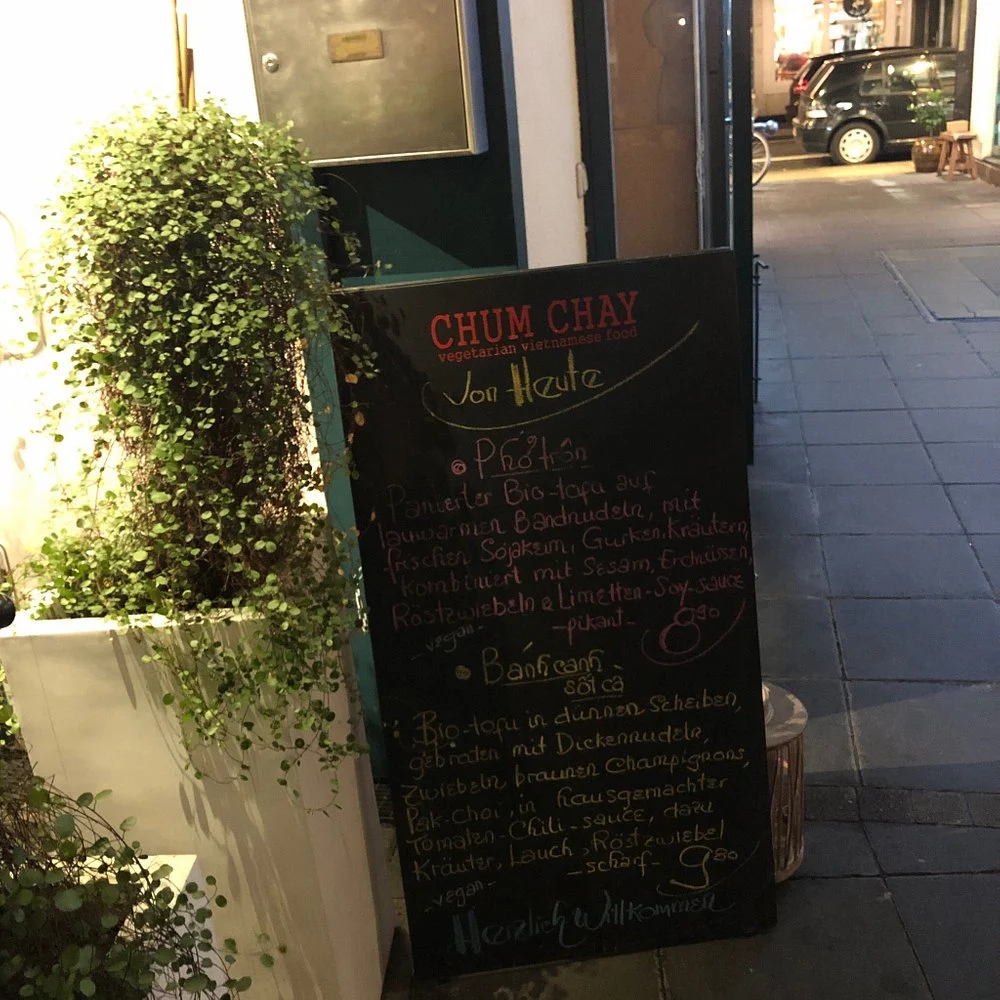 CHUM CHAY
vegetarian vietnamese food
Von Heute
Phở trộn
Panierter Bio-tofu auf
lauwarmen Bandnudeln, mit
frischen Sojakeim, Gurken, Kräutern,
kombiniert mit Sesam, Erdnüssen,
Röstzwiebeln & Limetten-Soy-sauce
-vegan- -pikant- 8,90
Bánh canh
sốt cà
Bio-tofu in dünnen Scheiben,
gebraten mit Dickennudeln,
Zwiebeln, braunen Champignons,
Pak-choi, in hausgemachter
Tomaten-Chili-sauce, dazu
Kräuter, Lauch, Röstzwiebel
-vegan- -scharf- 9,80
Herzlich Willkommen